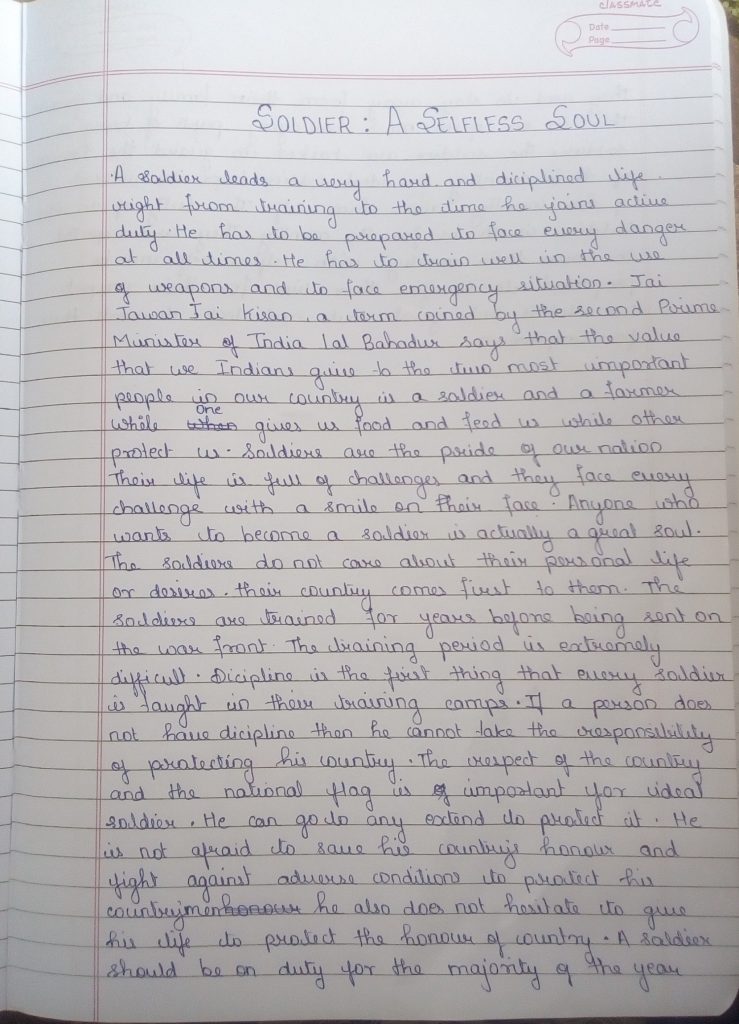 CLASSMATE
Date
Page
SOLDIER : A SELFLESS SOUL
A soldier leads a very hard and diciplined life
right from training to the time he joins active
duty. He has to be prepared to face every danger
at all times. He has to train well in the use
of weapons and to face emergency situation. Jai
Jawan Jai Kisan, a term coined by the second Prime
Minister of India Lal Bahadur says that the value
that we Indians give to the two most important
people in our country is a soldier and a farmer
while One gives us food and feed us while other
protect us. Soldiers are the pride of our nation
Their life is full of challenges and they face every
challenge with a smile on their face. Anyone who
wants to become a soldier is actually a great soul.
The soldiers do not care about their personal life
or desires. their country comes first to them. The
soldiers are trained for years before being sent on
the war front. The training period is extremely
difficult. Dicipline is the first thing that every soldier
is taught in their training camps. If a person does
not have dicipline then he cannot take the responsibility
of protecting his country. The respect of the country
and the national flag is important for ideal
soldier. He can go to any extend to protect it. He
is not afraid to save his country's honour and
fight against adverse conditions to protect his
countrymen he also does not hesitate to give
his life to protect the honour of country. A soldier
should be on duty for the majority of the year